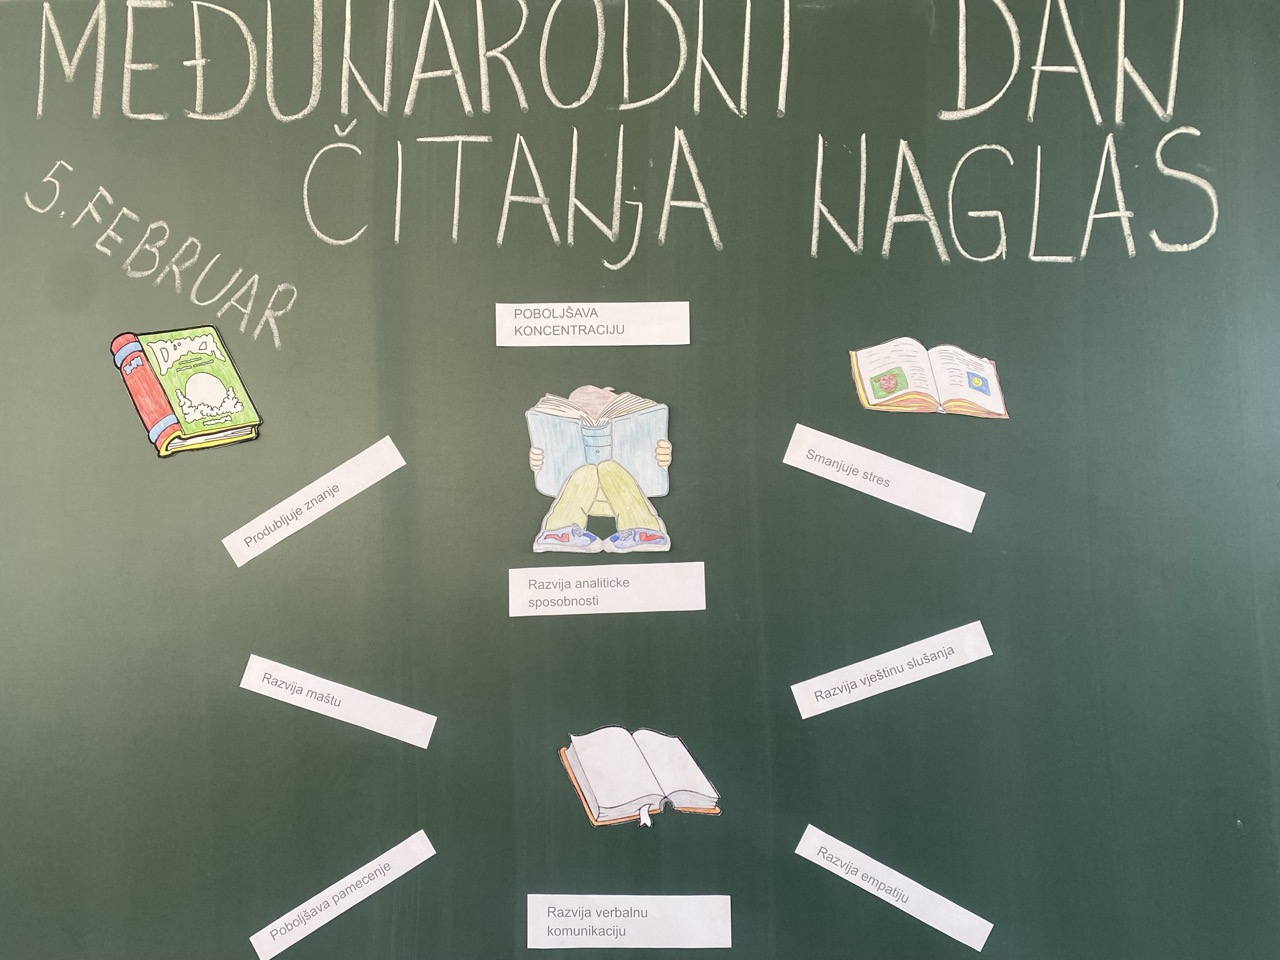 MEĐUNARODNI DAN
ČITANjA NAGLAS
5. FEBRUAR
POBOLJŠAVA
KONCENTRACIJU
Produbljuje znanje
Smanjuje stres
Razvija analiticke
sposobnosti
Razvija maštu
Razvija vještinu slušanja
Poboljšava pamecenje
Razvija verbalnu
komunikaciju
Razvija empatiju